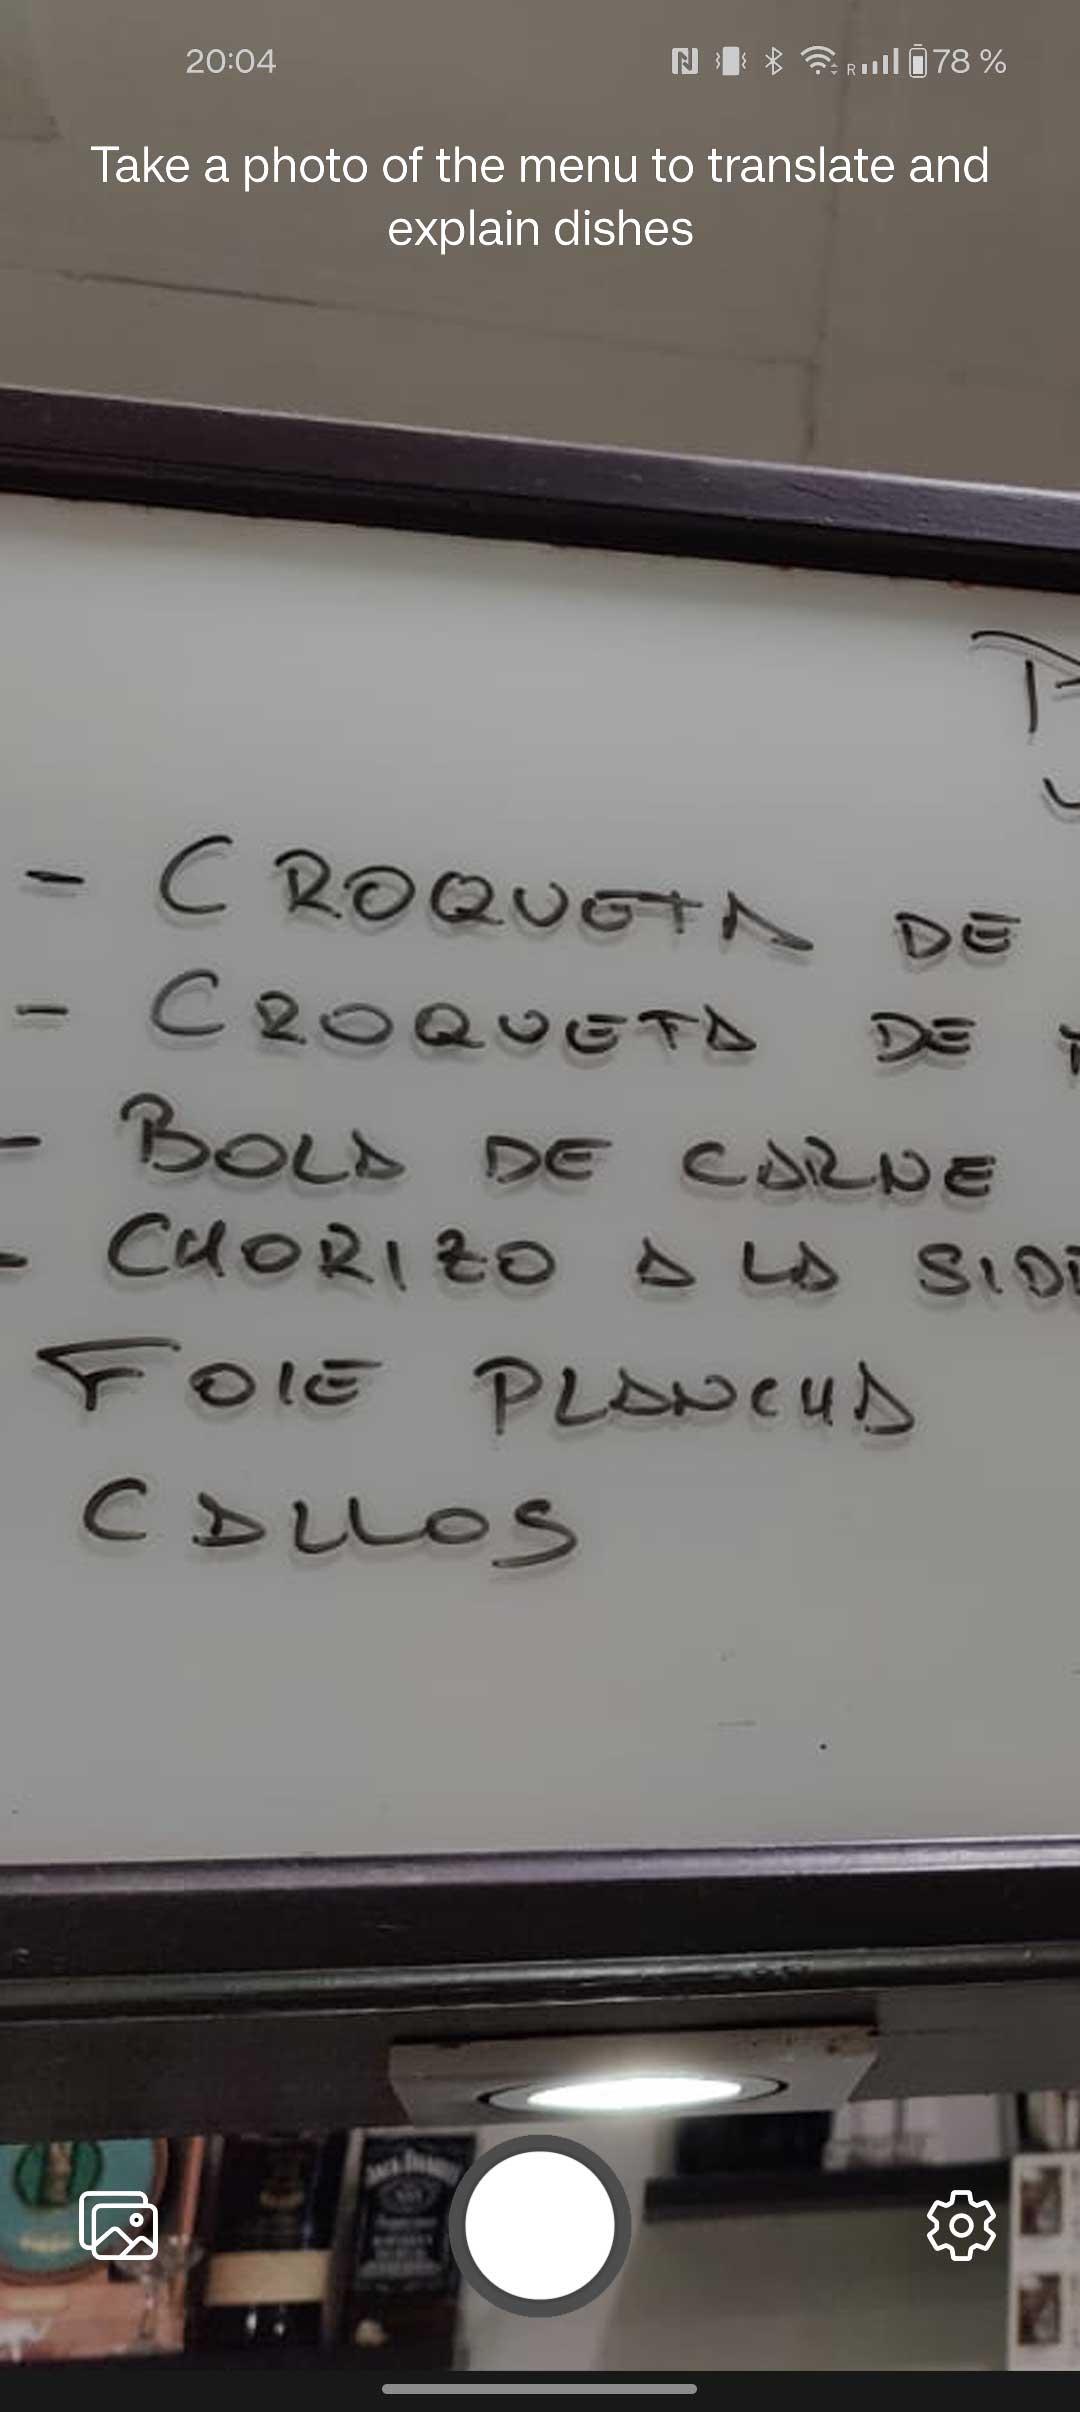 20:04
R
78 %
Take a photo of the menu to translate and
explain dishes
- CROQUETA DE
- CROQUETA DE
- BOLA DE CARNE
- CHORIZO A LA
FOIE PLANCHA
CALLOS
JACK DANIEL'S